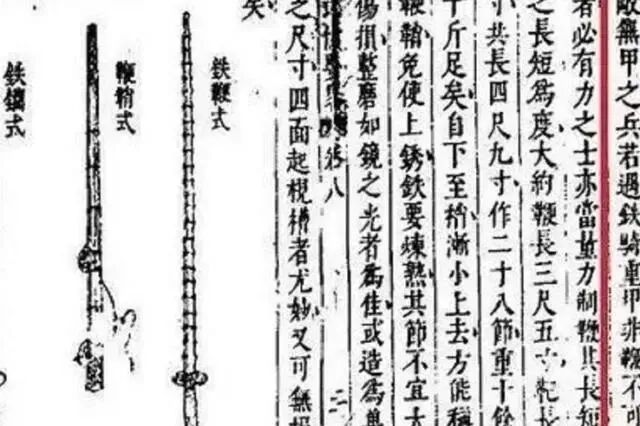 敵無甲之兵若遇鉄騎重甲非鞭不可
者必有力之士亦當量力制鞭其長短
之長短為度大約鞭長三尺五寸靶長
寸共長四尺九寸作二十八節重十餘
千斤足矣自下至梢漸小上去方能稱
鞭鞘免使上銹鉄要煉熟其節不宜大
傷損整磨如鏡之光者為佳或造為異
卷八
二
之尺寸四面起棱槽者尤妙又可無損
矣
鉄鞭式
鞭鞘式
鉄鐧式